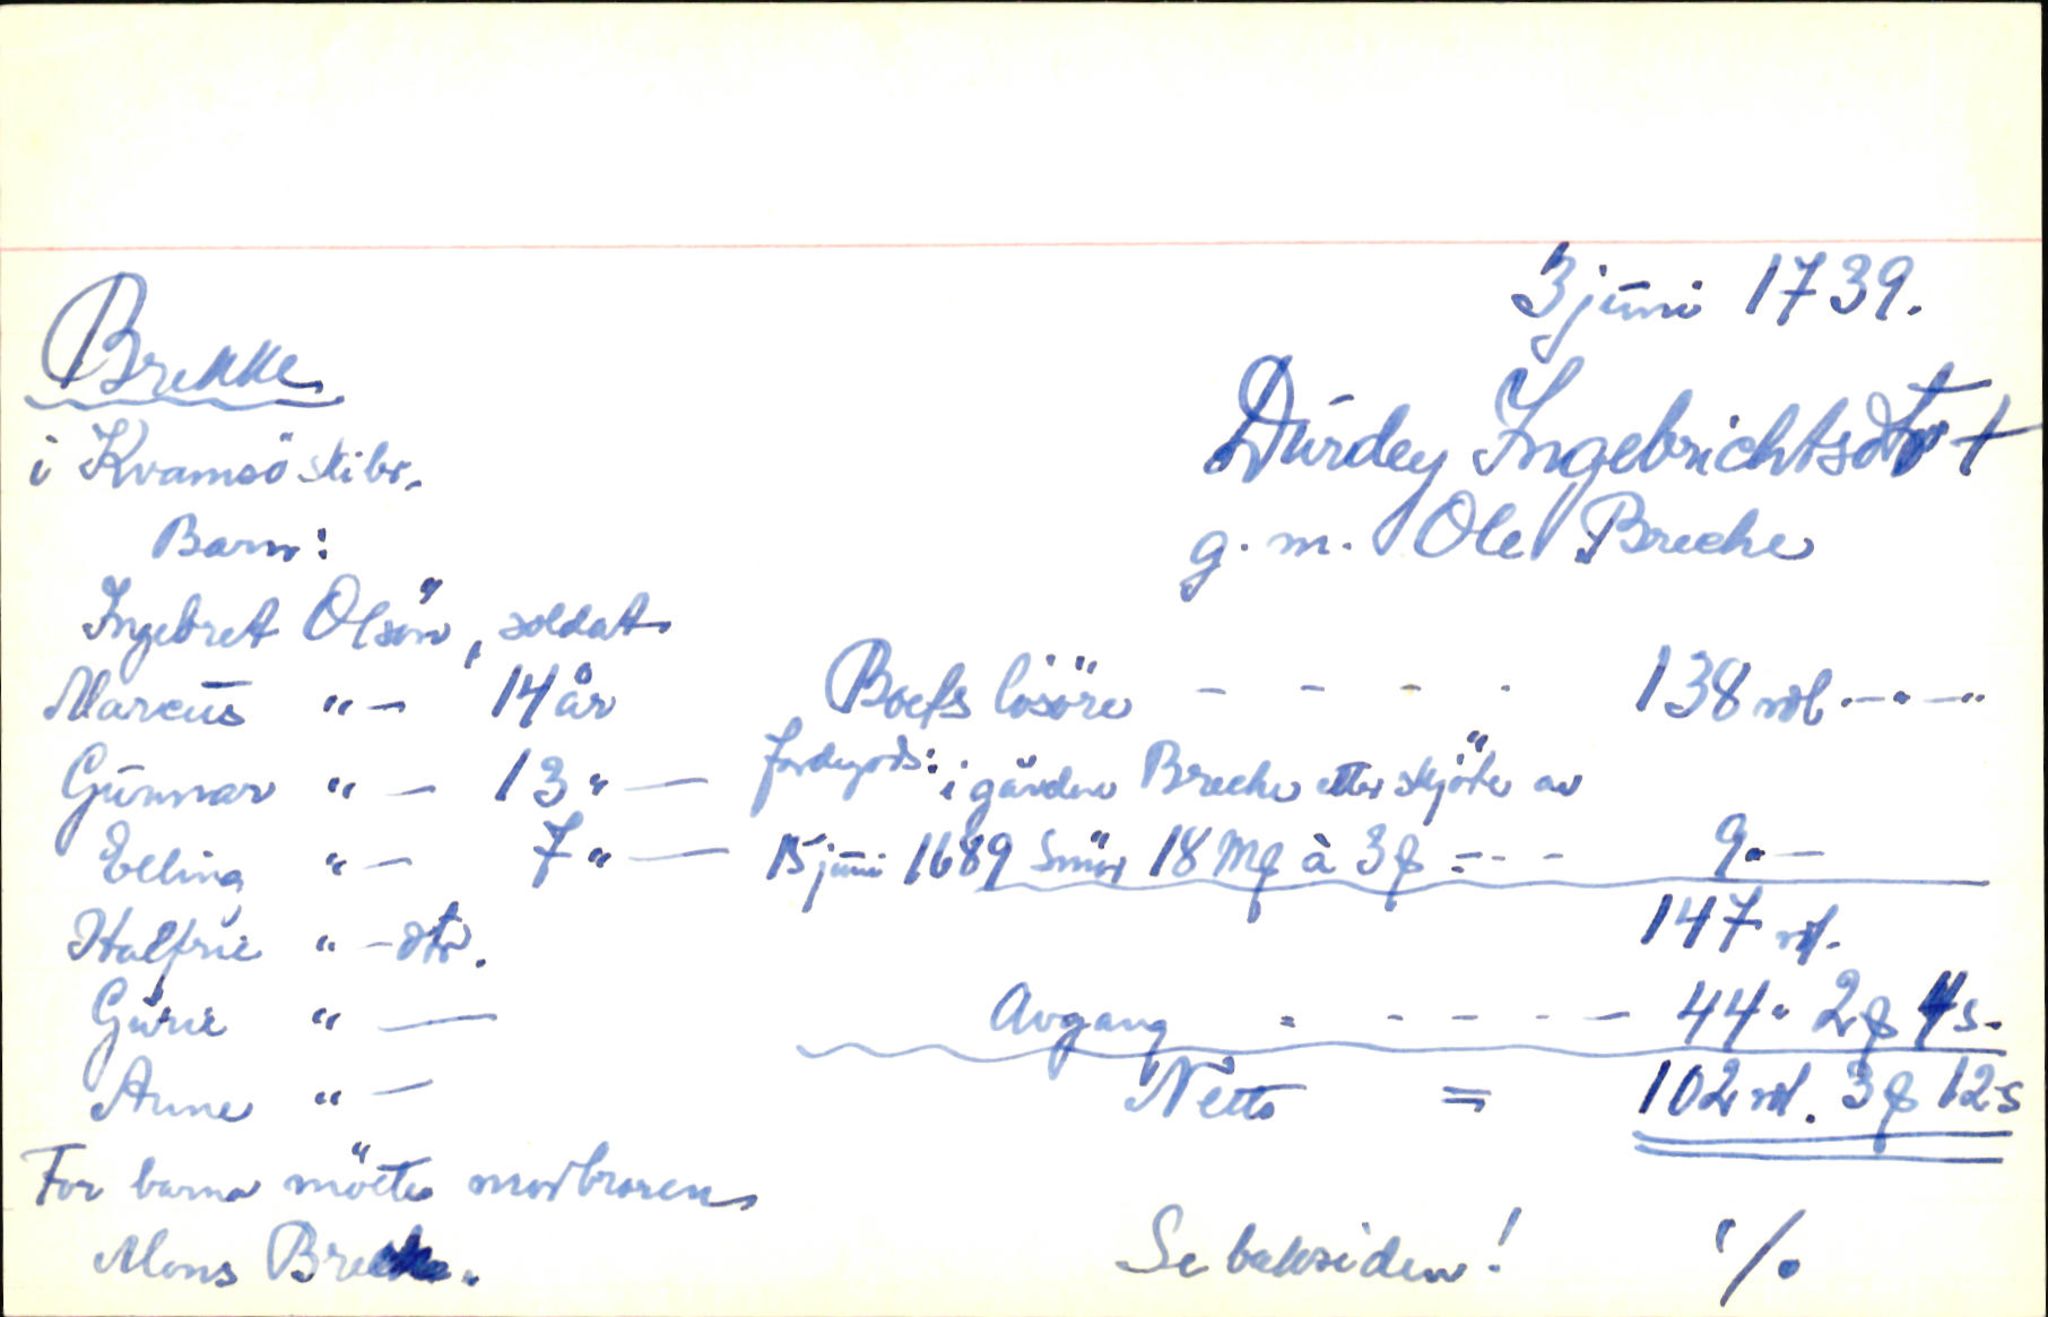 3 juni 1739.
Brekke
i Kvamsö skibr.
Dürdey Ingebrichtsdtr †
g. m. Ole Breche
Barn:
Ingebret Olsön, soldat
Marcus "— 14 år
Gunnar "— 13 "—
Elling "— 7 "—
Halfrie "—dtr.
Gurie "—
Anne "—
For barna mötte morbroren
Mons Breche.
Boets lösöre - - - - 138 rdl. —"—"
Jordegods: i gården Breche etter skjöte av
15 juni 1689 Smör 18 mf à 3 f = - - 9 "—
147 rdl.
Avgang - - - - - - 44 " 2 f 4 s.
Netto = 102 rdl. 3 f 12 s
Se baksiden! ·/.